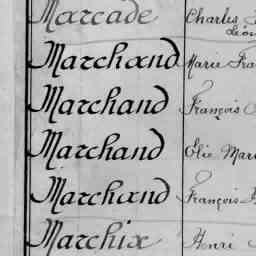 Marcade Charles
Léon
Marchand Marie Fra
Marchand François
Marchand Élie Mari
Marchand François
Marchix Henri